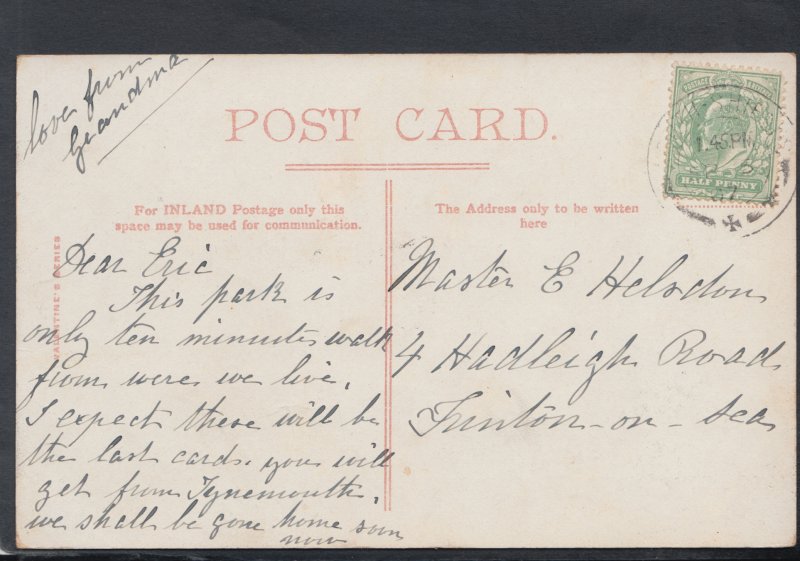 love from
Grandma
POST CARD.
For INLAND Postage only this
space may be used for communication.
The Address only to be written
here
VALENTINE'S SERIES
HALF PENNY
1.45PM
Dear Eric
This park is
only ten minutes walk
from were we live,
I expect these will be
the last cards. you will
get from Tynemouth,
we shall be gone home soon
now
Master E Helsdon
4 Hadleigh Road
Frinton-on-sea